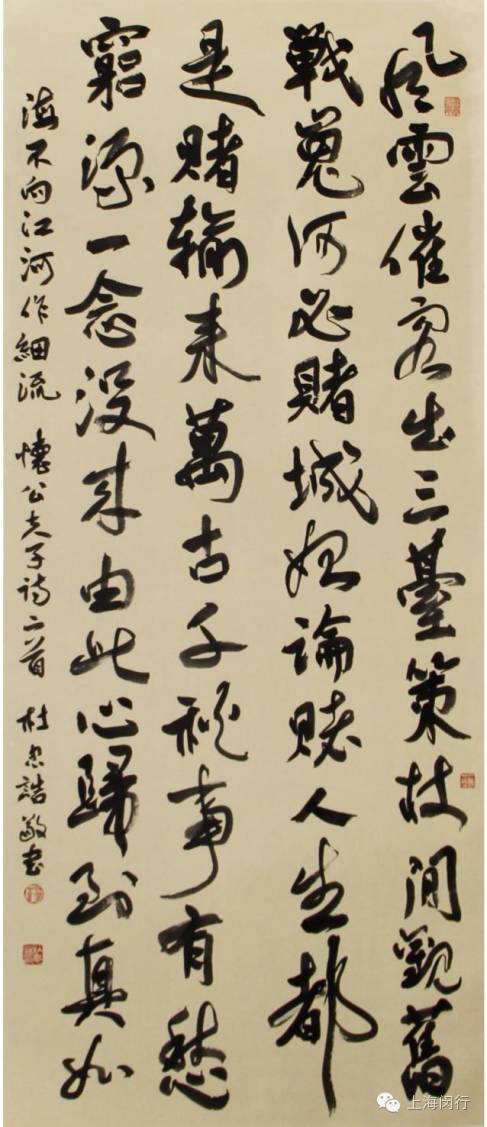 風雲催客出三臺策杖閒觀舊
戰嵬何必賭城始論賭人生都
是賭輸來萬古千秋事有愁
窮源一念没來由此心歸到真如
海不向江河作細流 懷公夫子詩二首 杜忠誥敬書
上海闵行